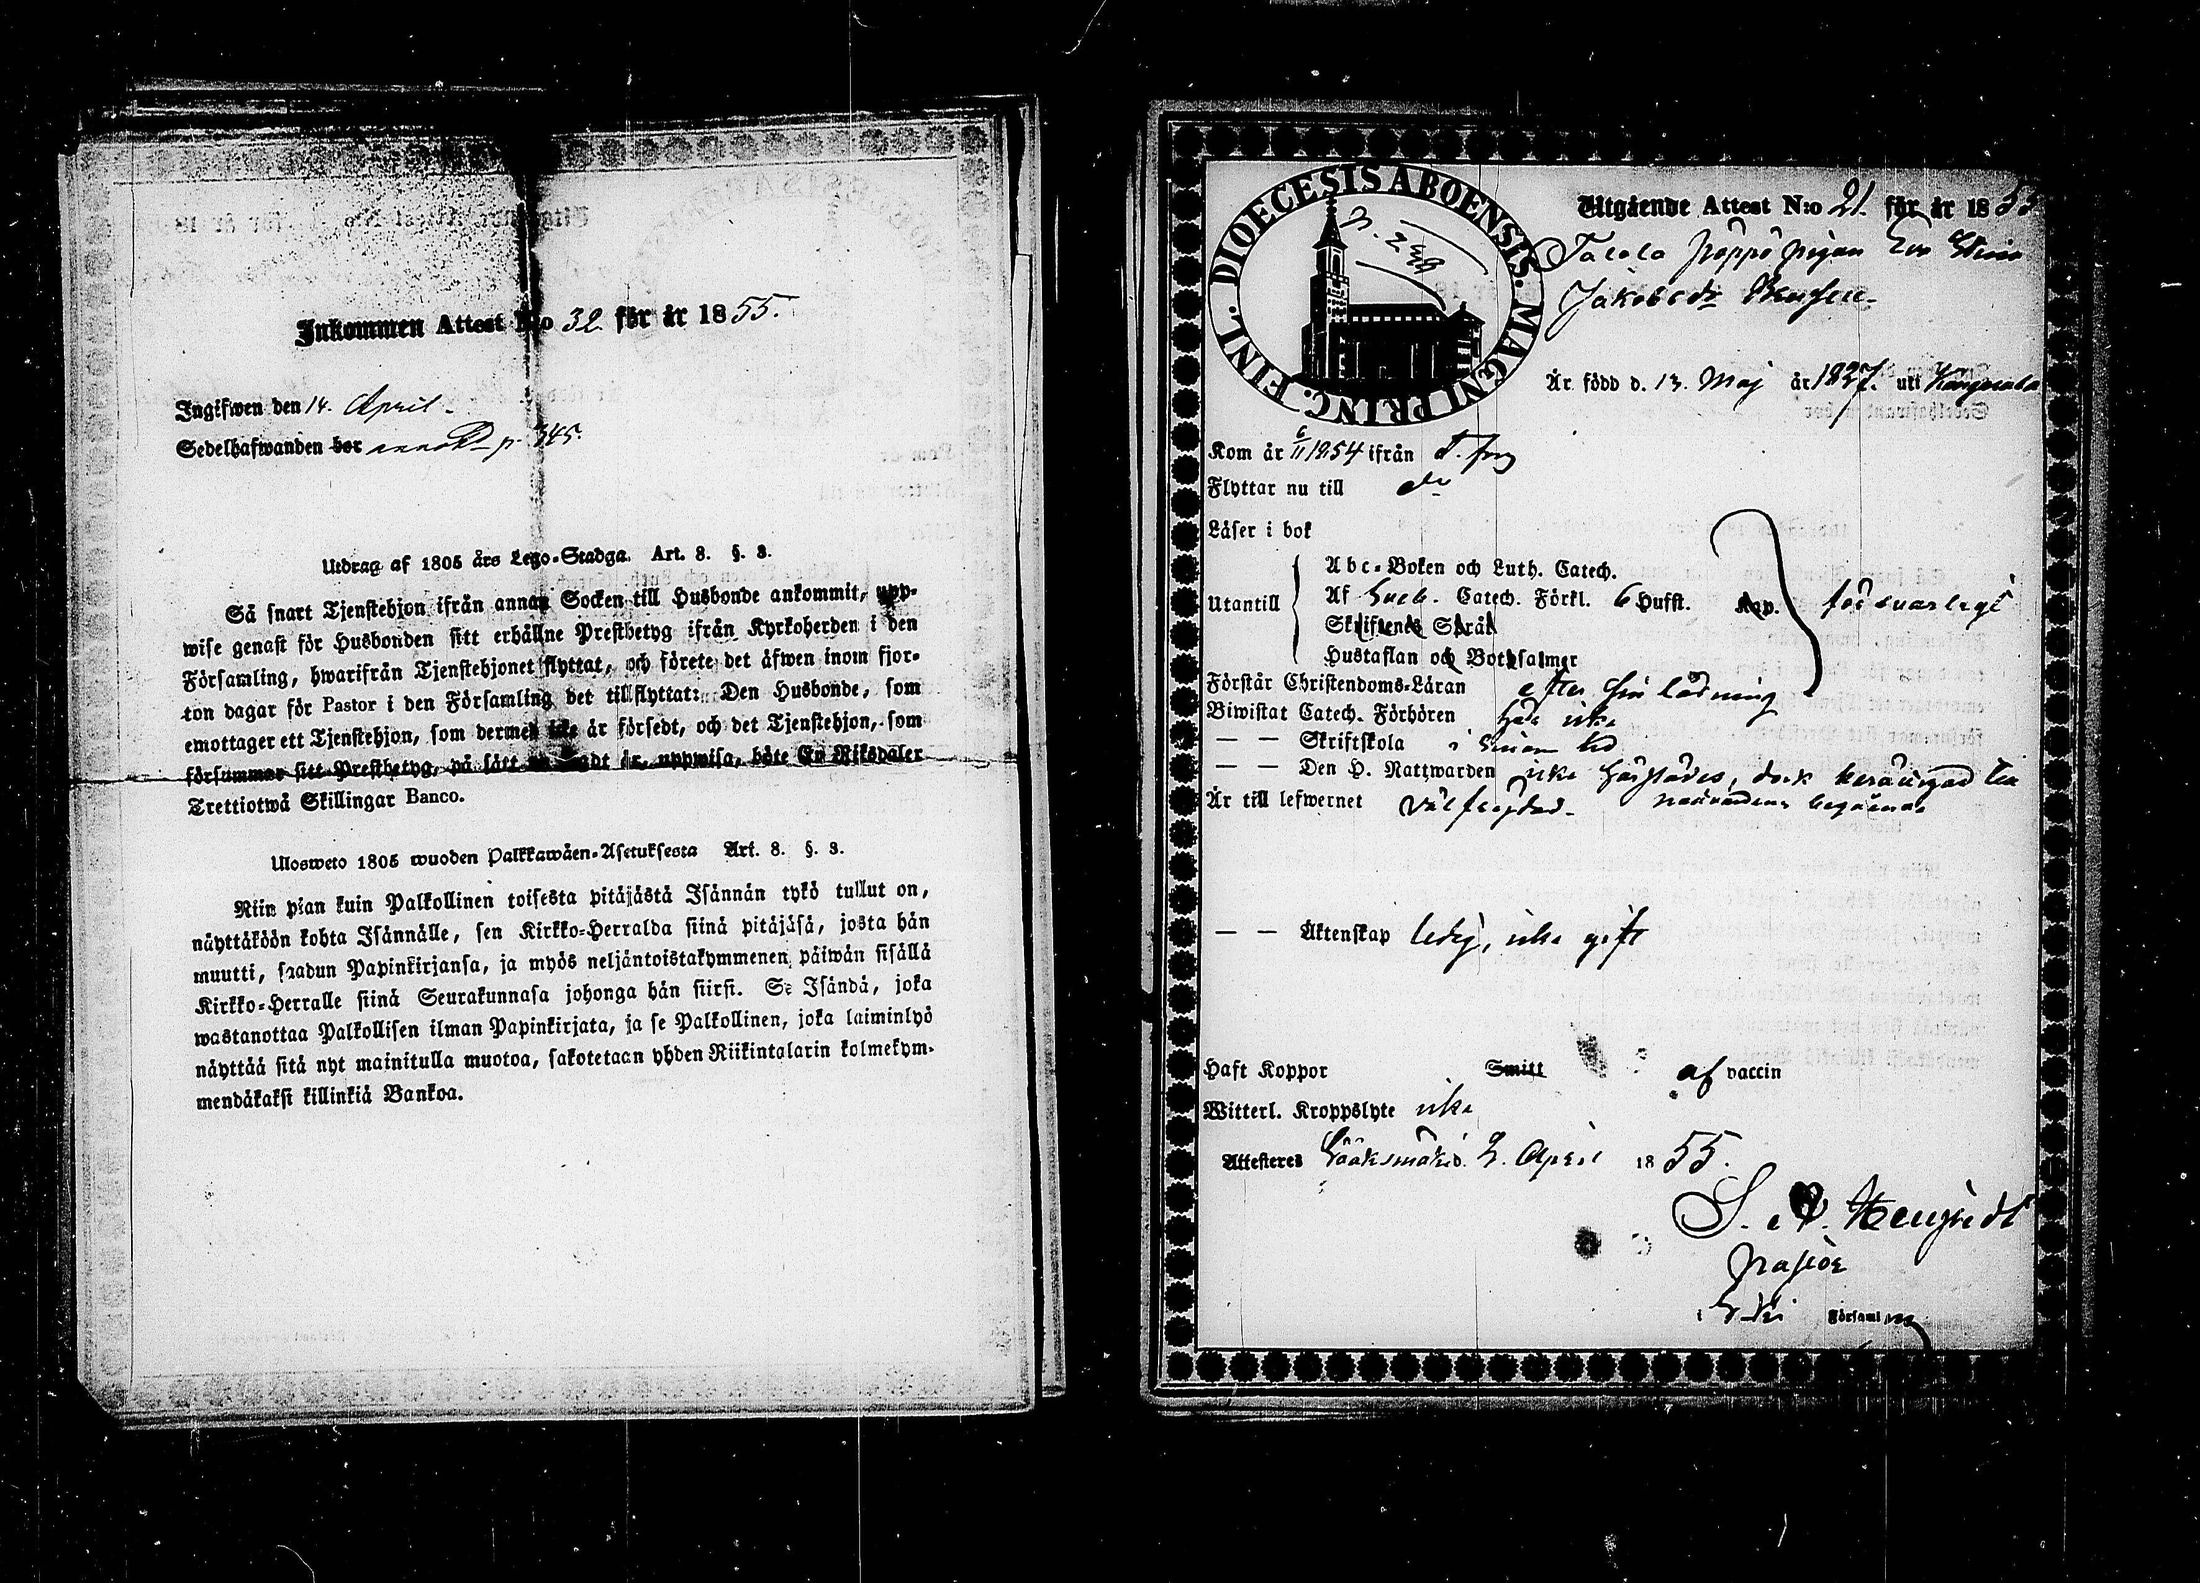 Inkommen Attest N:o 32. för år 1855.
Ingifwen den 14. April.
Sedelhafwanden bor p. 345.
Utdrag af 1805 års Lego-Stadga. Art. 8. §. 3.
Så snart Tjenstehjon ifrån annan Socken till Husbonde ankommit, upp-
wise genast för Husbonden sitt erhållne Prestbetyg ifrån Kyrkoherden i den
Församling, hwarifrån Tjenstehjonet flyttat, och förete det äfwen inom fjor-
ton dagar för Pastor i den Församling det tillflyttat: Den Husbonde, som
emottager ett Tjenstehjon, som dermed icke är försedt, och det Tjenstehjon, som
försummar sitt Prestbetyg, på sätt nu sagdt är, uppwisa, böte En Riksdaler
Trettiotwå Skillingar Banco.
Ulosweto 1805 wuoden Palkkawäen-Asetuksesta Art. 8. §. 3.
Niin pian kuin Palkollinen toisesta pitäjästä Isännän tykö tullut on,
näyttäköön kohta Isännälle, sen Kirkko-Herralda siinä pitäjäsä, josta hän
muutti, saadun Papinkirjansa, ja myös neljäntoistakymmenen päiwän sisällä
Kirkko-Herralle siinä Seurakunnasa johonga hän siirsi. Se Isändä, joka
wastanottaa Palkollisen ilman Papinkirjata, ja se Palkollinen, joka laiminlyö
näyttää sitä nyt mainitulla muotoa, sakotetaan yhden Riikintalarin kolmekym-
mendäkaksi killinkiä Bankoa.
DIOECESIS ABOENSIS. MAGNI PRINC. FINL.
Utgående Attest N:o 21. för år 1855
pigan Eva Stina
Jakobsdr
Är född d. 13. Maj år 1837. uti Kangasala
Kom år 6/11 1854 ifrån
Flyttar nu till do
Läser i bok
Abc-Boken och Luth. Catech.
Utantill Af Sveb. Catech. Förkl. 6 Hufst. Kap. försvarligt
Skriftenes Språk
Hustaflan och Botpsalmer
Förstår Christendoms-Läran efter sin läsning
Biwistat Catech. Förhören här icke
— — Skriftskola i sinom tid
— — Den H. Nattwarden icke härstädes, dock berättigad till
Är till lefwernet välfrejdad. nattvardens begående
— — Äktenskap ledig, icke gift
Haft Koppor Smitt af vaccin
Witterl. Kroppslyte icke
Attesteras Sääksmäki d. 2. April 1855.
S. A.
Pastor
i Församling